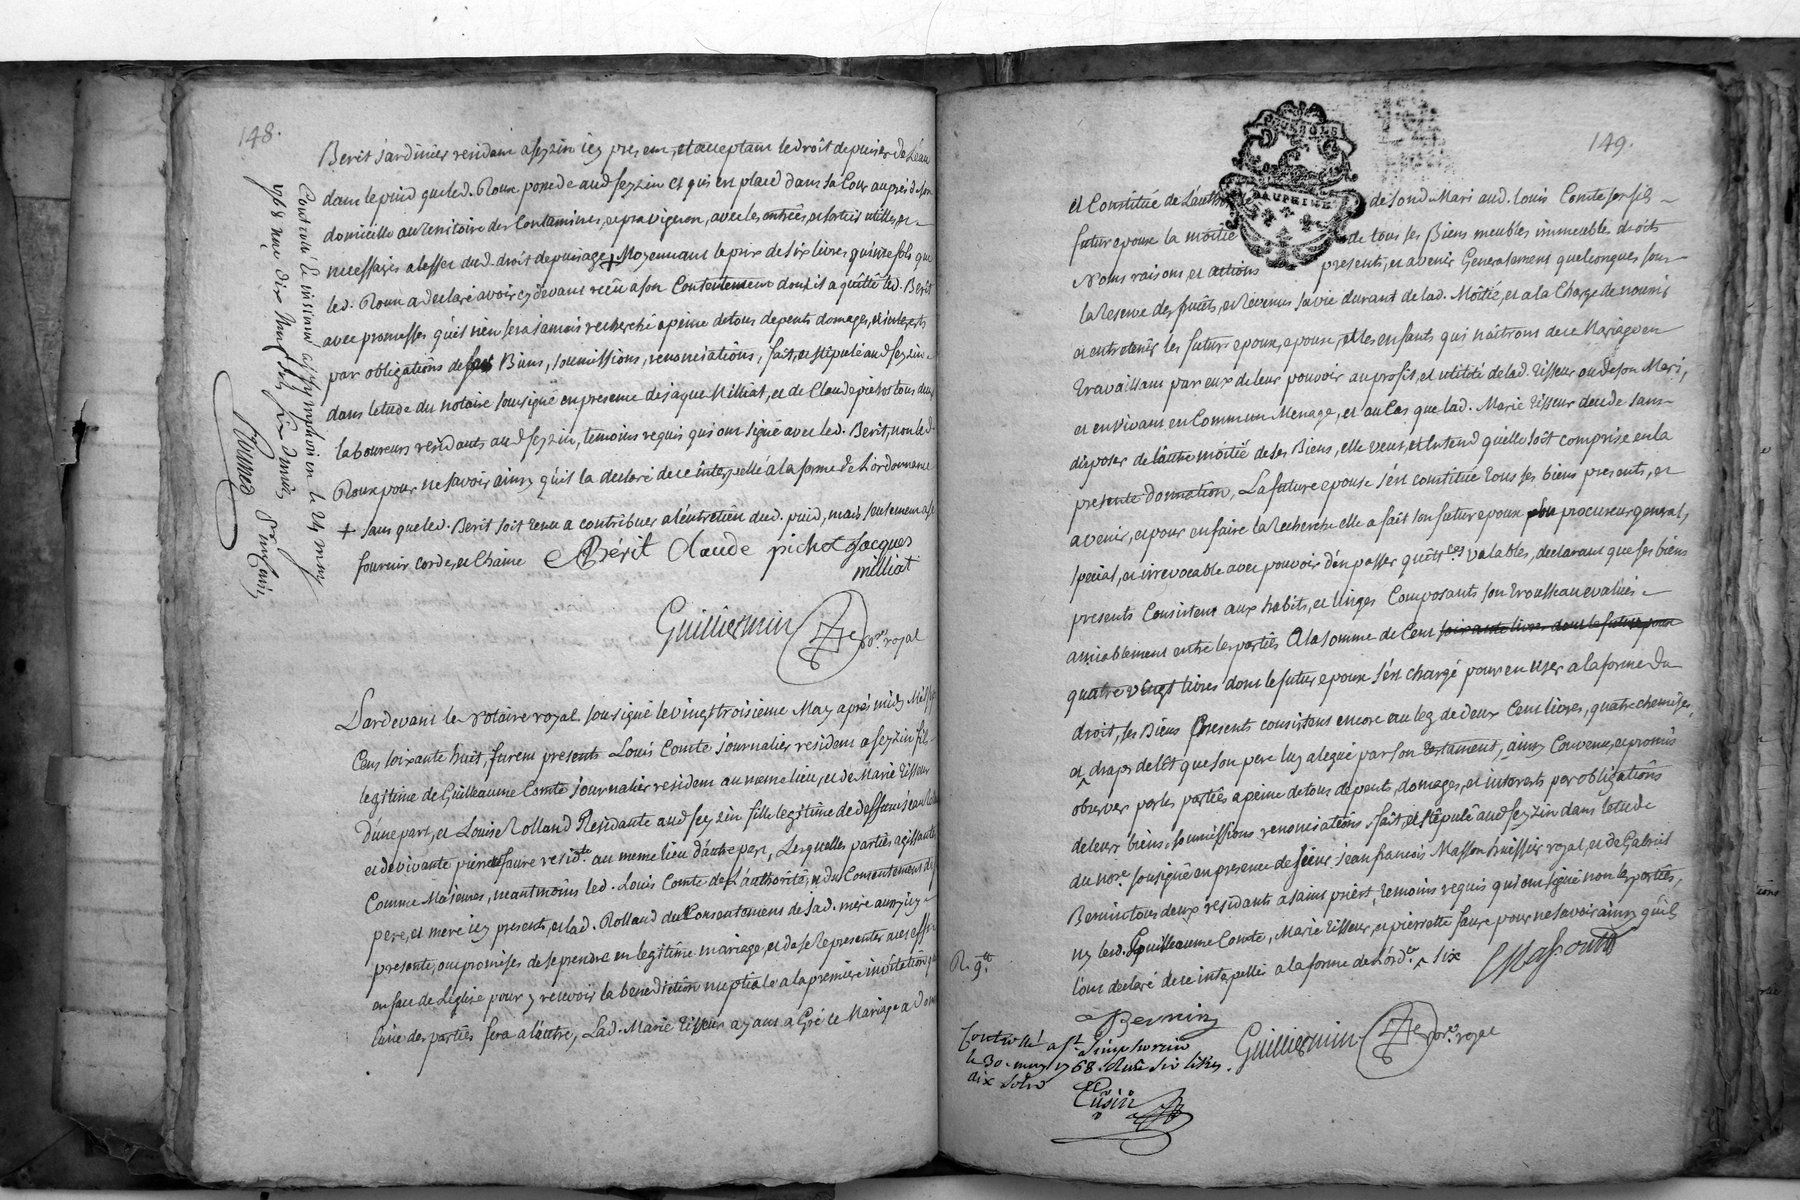 148.
Berit Jardinier residant a feyzin icy present, et acceptant le droit de puiser de L'eau
dans le puid que led. Roux possede aud feyzin et qui en placé dans sa Cour auprés de son
domicille au territoire des Contamines, et pravignon, avec les entrées, et sorties utilles, et
necessaires a leffet dud. droit de puisage + Moyennant le prix de six livres, quinze sols que
led. Roux a declaré avoir cy devant reçu a son Contentement dont il a quitté led. Berit
avec promesses qu'il n'en sera jamais recherché a peine de tous depents domages, et interests
par obligations de ses Biens, soumissions, renonciations, fait, et stipulé aud feyzin
dans letude du notaire sousigné en presence de jaque Milliat, et de Claude pichot tous deux
laboureurs residants aud feyzin, temoins requis qui ont signé avec led. Berit, non led.
Roux pour ne savoir ainsy qu'il la declaré de ce interpellé a la forme de L'ordonnance
+ sans que led. Berit soit tenu a contribuer a l'éntretien dud. puid, mais seulement a se
fournir corde, et Chaine Bérit Claude pichot Jacques
milliat
Guilliermin no.re royal
Controlé et insinué a St symphorien le 24 may
1768 reçu dix neuf sols
Pardevant le Notaire royal sousigné le vingt troisieme May aprés midy Mil sept
Cens soixante huit, furent presents Louis Comte journalier residant a feyzin fils
legitime de Guilleaume Comte journalier residant au meme lieu, et de Marie Tisseur
d'une part, et Louise Rolland Residante aud feyzin fille legitime de deffunt
et de vivante pierrette faure resid.te au meme lieu d'autre part, Lesquelles parties agissantes
Comme Majeures, neantmoins led. Louis Comte de L'authorité, et du Consentement de ses
pere, et mere icy presents, et lad. Rolland du Consentement de sad. mere aussy icy
presente, ont promises de se prendre en legitime mariage, et de se Representer
en face de L'église pour y recevoir la benediction nuptiale a la premiere invitation que
l'une des parties fera a lautre, Lad. Marie Tisseur ayant a Gré le Mariage a donné
149.
DAUPHINE
et Constitué de L'auth de sond Mari aud. Louis Comte son fils
futur epoux la moitié de tous ses Biens meubles immeubles droits
Noms raisons, et actions presents, et avenir Generalement quelconques sous
la Reserve des fruits, et Revenus sa vie durant de lad. Moitié, et a la Charge de nourrir
et entretenir les futurs epoux, epouse, et les enfants qui naitrons de ce Mariage en
travaillant par eux de leur pouvoir au profit, et utilité de lad. Tisseur ou de son Mari,
et en vivant en Commun Menage, et au Cas que lad. Marie Tisseur decede sans
disposer de l'autre moitié de ses Biens, elle veut, et entend qu'elle soit comprise en la
presente donnation, La future epouse s'ést constitué tous ses biens presents, et
avenir, et pour en faire la Recherche elle a fait son futur epoux son procureur general,
special, et irrevocable avec pouvoir d'én passer quitt.ces valables, declarant que ses biens
presents Consistent aux habits, et Linges Composants son trousseau evalués
amiablement entre les parties a la somme de Cent soixante livres dont le futur epoux
quatre vingt livres dont le futur epoux s'ést chargé pour en user a la forme du
droit, ses Biens presents consistent encore au leg de deux Cent livres, quatre chemises,
et draps de lit que son pere luy a legué par son testament, ainsy Convenu, et promis
observer par les parties a peine de tous depents, domages, et interests par obligations
de leurs biens, soumissions renonciations, fait, et stipulé aud feyzin dans letude
du no.re sousigné en presence de sieur jean francois Masson huissier royal, et de Gabriel
Bernin tous deux residants a saint priest, temoins requis qui ont signé non les parties,
ny led. Guilleaume Comte, Marie Tisseur, et pierrette faure pour ne savoir ainsy qu'ils
l'ont declaré de ce interpellés a la forme de L'órd.ce six Masson
Bernin
Guilliermin no.re royal
R. 9.tt
Controlé a st. Simphorien
le 30. may 1768. Reçu six livres
dix sols